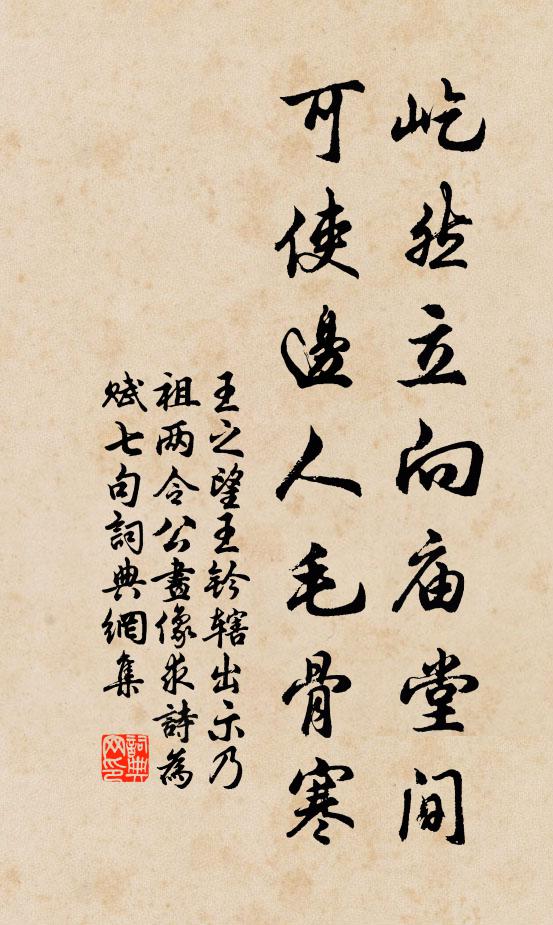 屹然立向庙堂间
可使邊人毛骨寒
王之望王鈐轄出示乃
祖两令公畫像求詩為
赋七句詞典網集
詞典网印